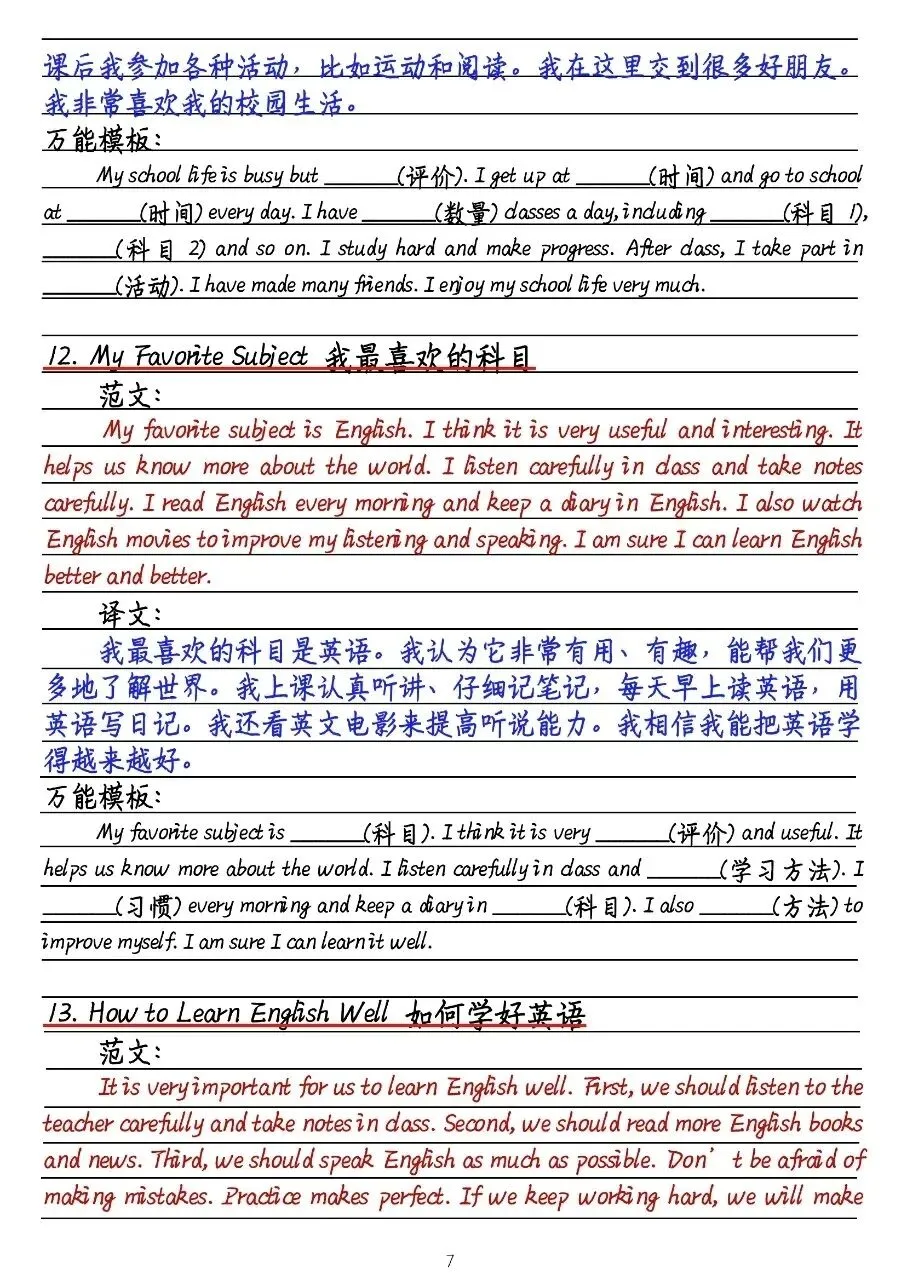 课后我参加各种活动，比如运动和阅读。我在这里交到很多好朋友。
我非常喜欢我的校园生活。
万能模板：
My school life is busy but ______(评价). I get up at ______(时间) and go to school
at ______(时间) every day. I have ______(数量) classes a day, including ______(科目 1),
______(科目 2) and so on. I study hard and make progress. After class, I take part in
______(活动). I have made many friends. I enjoy my school life very much.
12. My Favorite Subject 我最喜欢的科目
范文：
My favorite subject is English. I think it is very useful and interesting. It
helps us know more about the world. I listen carefully in class and take notes
carefully. I read English every morning and keep a diary in English. I also watch
English movies to improve my listening and speaking. I am sure I can learn English
better and better.
译文：
我最喜欢的科目是英语。我认为它非常有用、有趣，能帮我们更
多地了解世界。我上课认真听讲、仔细记笔记，每天早上读英语，用
英语写日记。我还看英文电影来提高听说能力。我相信我能把英语学
得越来越好。
万能模板：
My favorite subject is ______(科目). I think it is very ______(评价) and useful. It
helps us know more about the world. I listen carefully in class and ______(学习方法). I
______(习惯) every morning and keep a diary in ______(科目). I also ______(方法) to
improve myself. I am sure I can learn it well.
13. How to Learn English Well 如何学好英语
范文：
It is very important for us to learn English well. First, we should listen to the
teacher carefully and take notes in class. Second, we should read more English books
and news. Third, we should speak English as much as possible. Don't be afraid of
making mistakes. Practice makes perfect. If we keep working hard, we will make
7